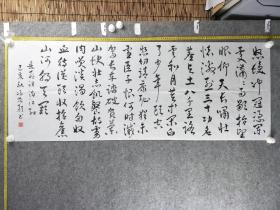 怒髮冲冠憑闌
處瀟瀟雨歇抬望
眼仰天長嘯壯
懷激烈三十功名
塵與土八千里路
雲和月莫等閑白
了少年頭空
悲切靖康恥猶未
雪臣子恨何時滅
駕長車踏破賀蘭
山缺壯志飢餐胡虜
肉笑談渴飲匈奴
血待從頭收拾舊
山河朝天闕
岳飛詞滿江紅
己亥秋 書